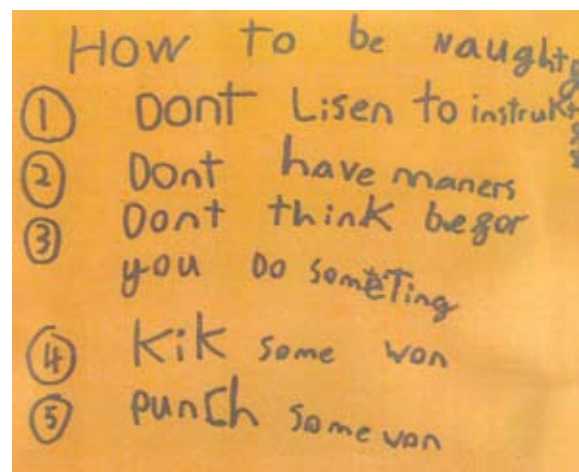 How to be Naughty
① Dont Lisen to instrukt
② Dont have maners
③ Dont think befor
you Do someting
④ Kik some won
⑤ punch some won